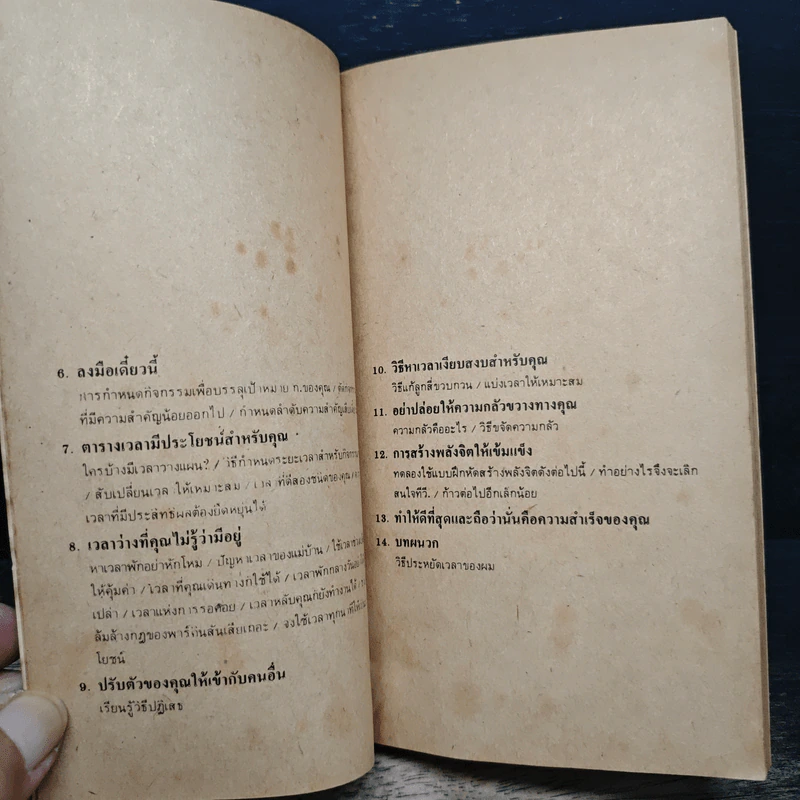 6. ลงมือเดี๋ยวนี้
การกำหนดกิจกรรมเพื่อบรรลุเป้าหมาย ก.ของคุณ /
ที่มีความสำคัญน้อยออกไป / กำหนดลำดับความสำคัญ
7. ตารางเวลามีประโยชน์สำหรับคุณ
ใครบ้างมีเวลาวางแผน? / วิธีกำหนดระยะเวลาสำหรับกิจกรรม
/ สับเปลี่ยนเวลาให้เหมาะสม / เวลาที่ดีสองชนิดของคุณ /
เวลาที่มีประสิทธิผลต้องยืดหยุ่นได้
8. เวลาว่างที่คุณไม่รู้ว่ามีอยู่
หาเวลาพักอย่าหักโหม / ปัญหาเวลาของแม่บ้าน /
ให้คุ้มค่า / เวลาที่คุณเดินทางก็ใช้ได้ / เวลาพักกลางวัน
เปล่า / เวลาแห่งการรอคอย / เวลาหลับคุณก็ยังทำงานได้ /
ล้มล้างกฎของพาร์กินสันเสียเถอะ / จงใช้เวลาทุกนาทีให้
โยชน์
9. ปรับตัวของคุณให้เข้ากับคนอื่น
เรียนรู้วิธีปฏิเสธ
10. วิธีหาเวลาเงียบสงบสำหรับคุณ
วิธีแก้ลูกสี่ขวบกวน / แบ่งเวลาให้เหมาะสม
11. อย่าปล่อยให้ความกลัวขวางทางคุณ
ความกลัวคืออะไร / วิธีขจัดความกลัว
12. การสร้างพลังจิตให้เข้มแข็ง
ทดลองใช้แบบฝึกหัดสร้างพลังจิตดังต่อไปนี้ / ทำอย่างไรจึงจะเลิก
สนใจทีวี. / ก้าวต่อไปอีกเล็กน้อย
13. ทำให้ดีที่สุดและถือว่านั่นคือความสำเร็จของคุณ
14. บทผนวก
วิธีประหยัดเวลาของผม